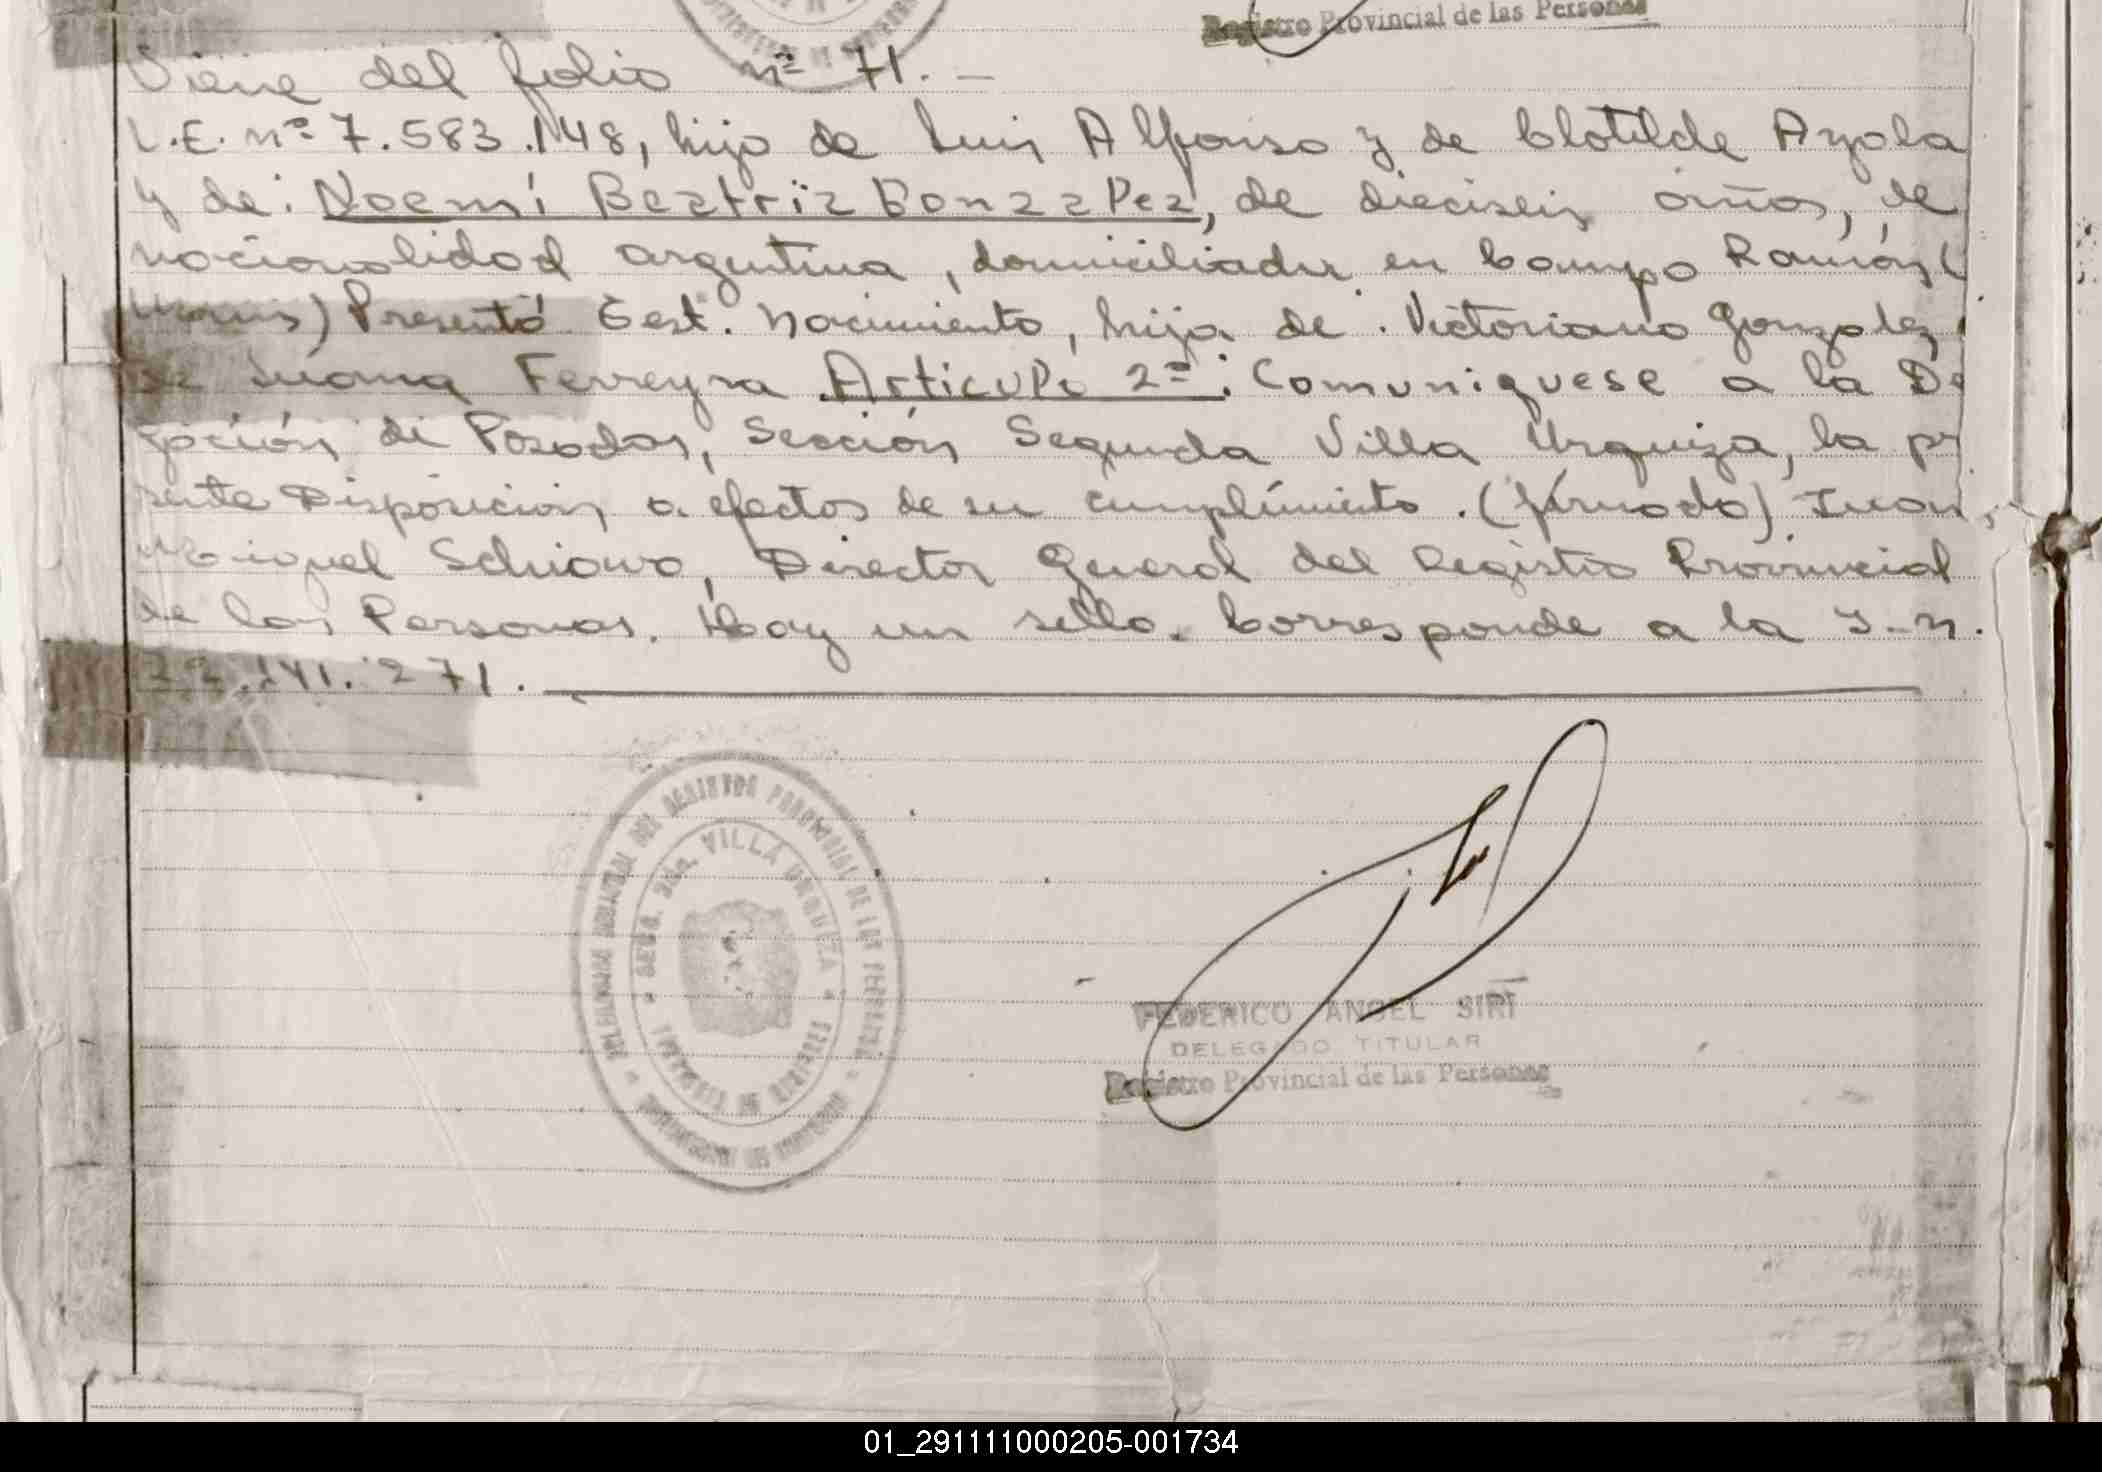 Registro Provincial de las Personas
Viene del folio nº 71.—
L.E. nº 7.583.148, hijo de Luis Alfonso y de Clotilde Ayala
y de: Noemí Beatriz Gonzalez, de dieciseis años, de
nacionalidad argentina, domiciliada en Campo Ramón (
) Presentó Cert. Nacimiento, hija de Victoriano Gonzalez
de Juana Ferreyra Articulo 2º: Comuniquese a la De
gación de Posadas, Sección Segunda Villa Urquiza, la pr
sente Disposición a efectos de su cumplimiento. (firmado) Juan
Miguel Schiavo, Director General del Registro Provincial
de las Personas. Hay un sello. Corresponde a la I-n.
.141.271.
REGISTRO PROVINCIAL DE LAS PERSONAS
SECC. 2da. VILLA URQUIZA
FEDERICO ANGEL SIRI
DELEGADO TITULAR
Registro Provincial de las Personas
01_291111000205-001734